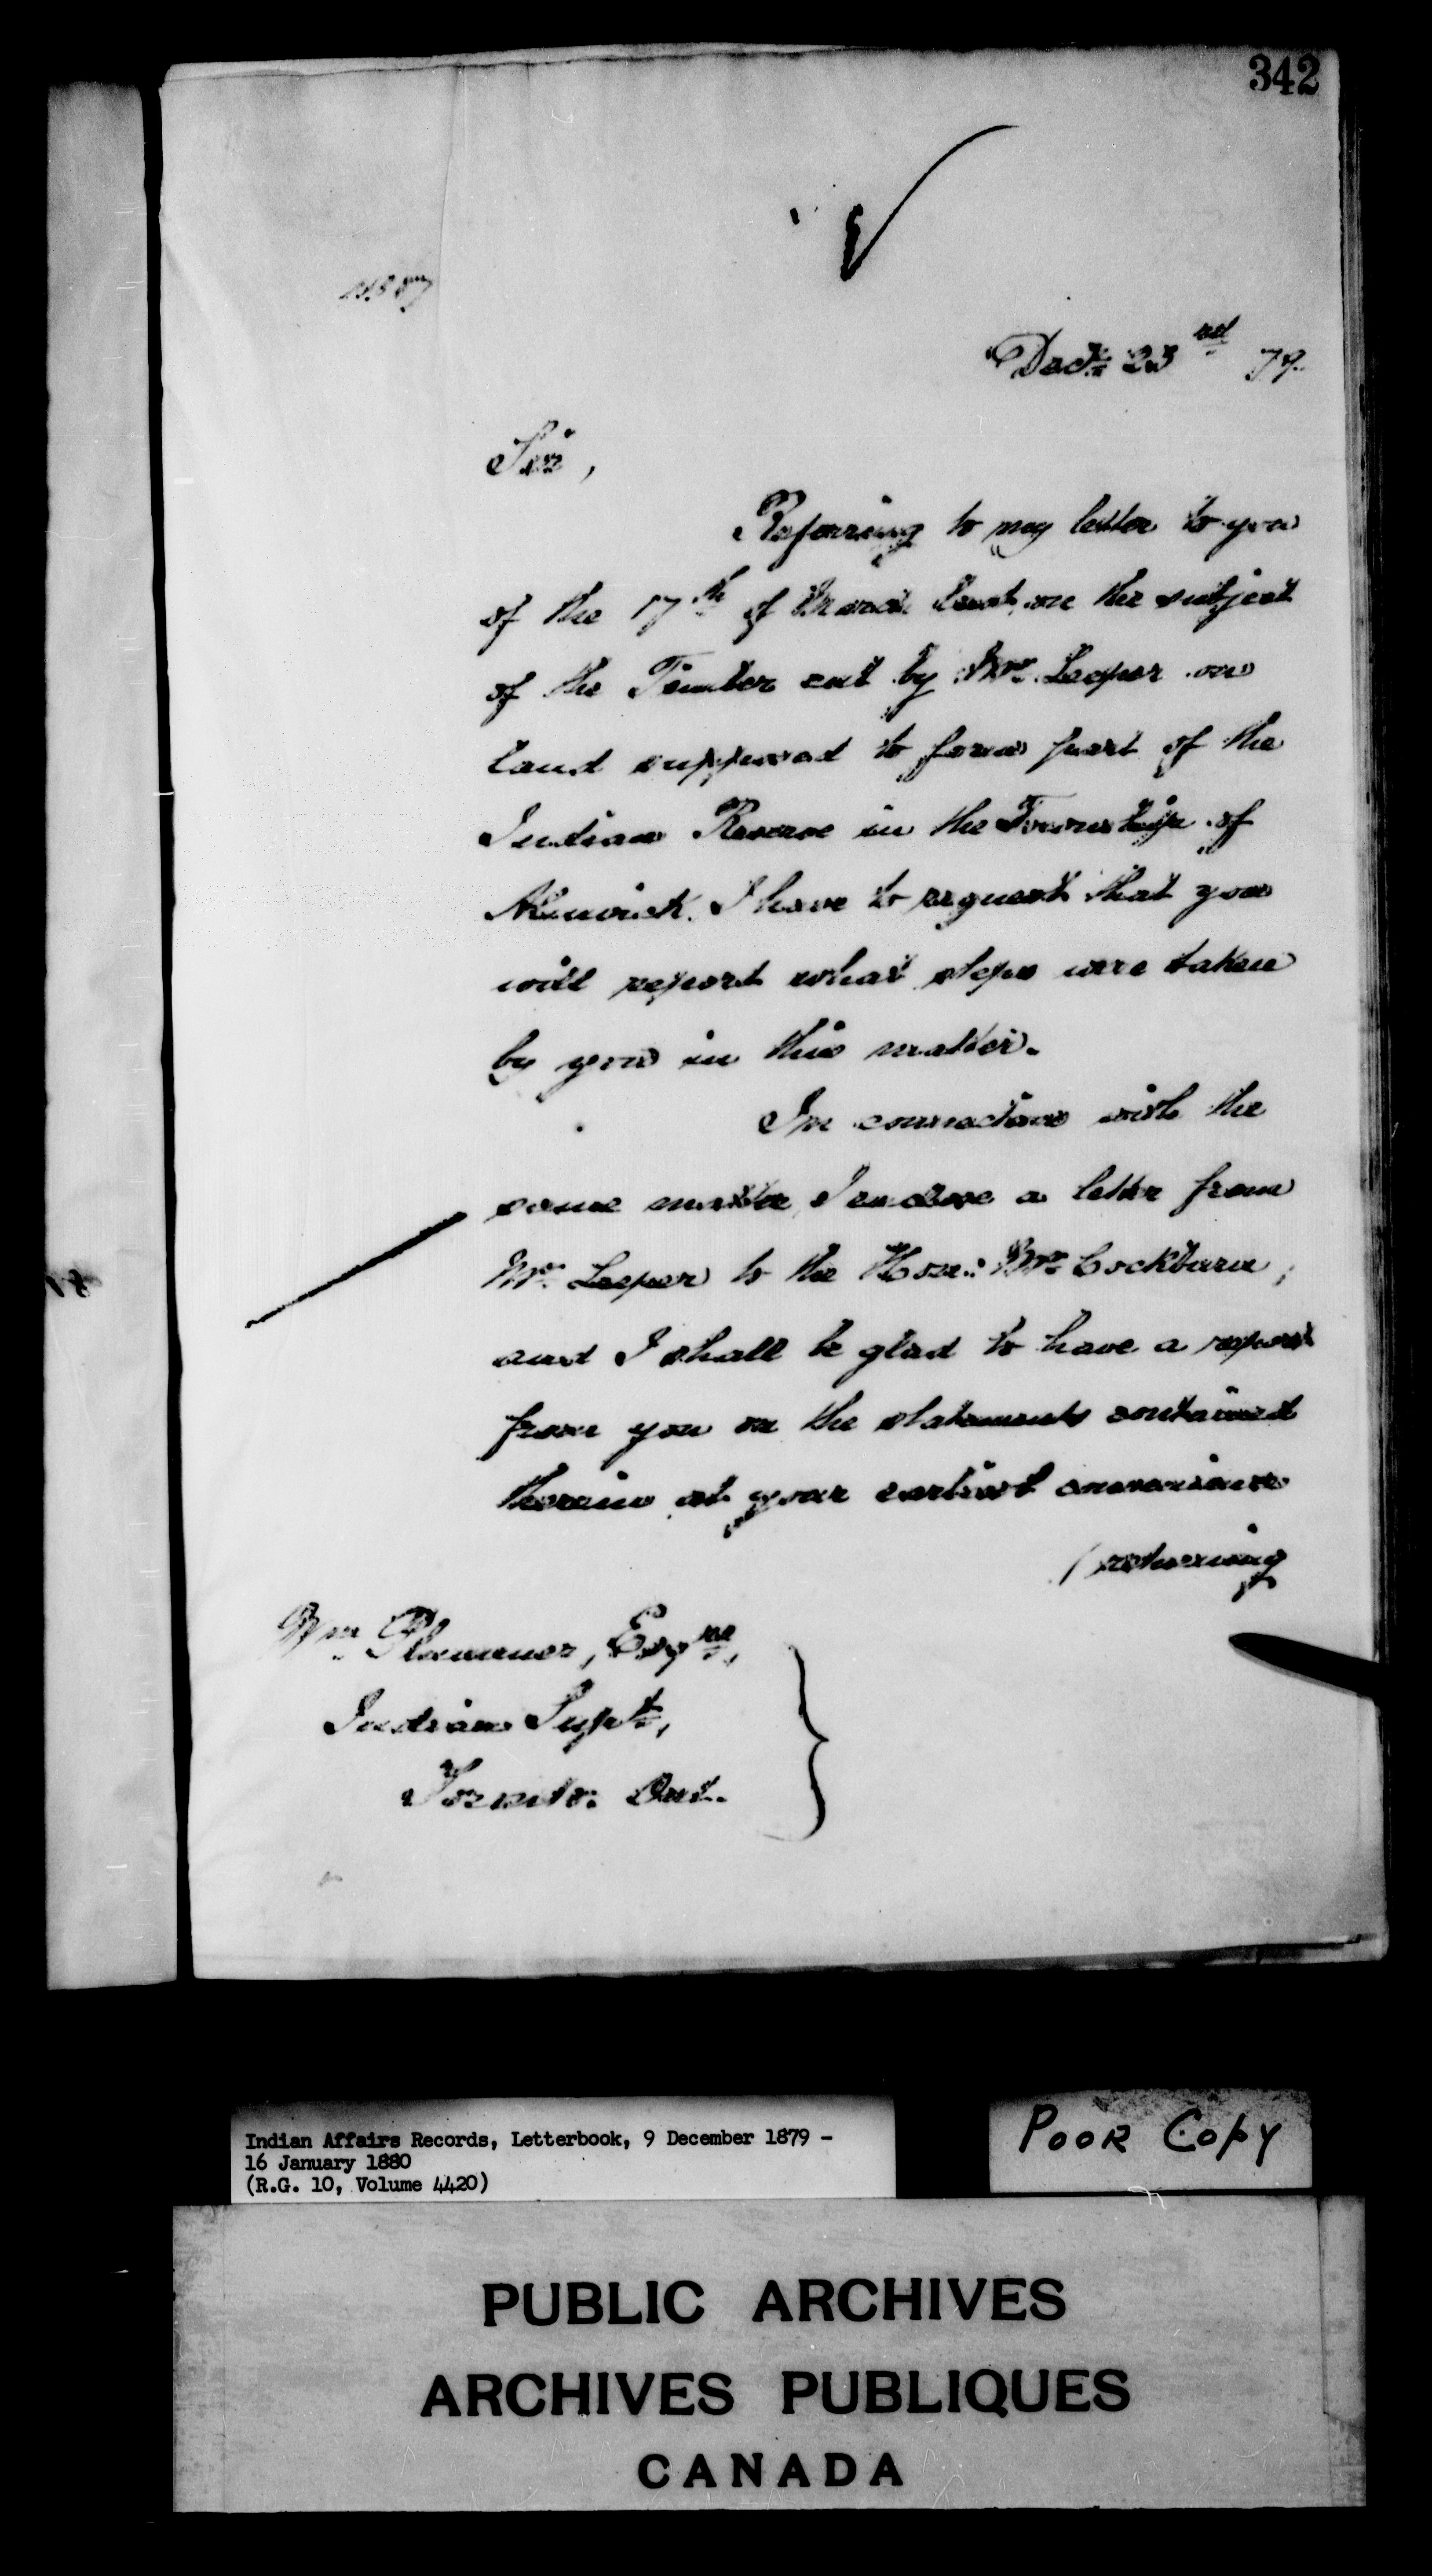 342
Decr 23rd 79.
Sir,
Referring to my letter to you
of the 17th of March last, on the subject
of the Timber cut by Mr. Leeper on
land supposed to form part of the
Indian Reserve in the Township of
Alnwick. I have to request that you
will report what steps were taken
by you in this matter.
In connection with the
same matter, I enclose a letter from
Mr. Leeper to the Hon: Mr. Cockburn,
and I shall be glad to have a report
from you on the statements contained
therein at your earliest convenience
/ returning
Wm. Plummer, Esqre,
Indian Supt,
Toronto. Ont.
Indian Affairs Records, Letterbook, 9 December 1879 -
16 January 1880
(R.G. 10, Volume 4420)
POOR COPY
PUBLIC ARCHIVES
ARCHIVES PUBLIQUES
CANADA